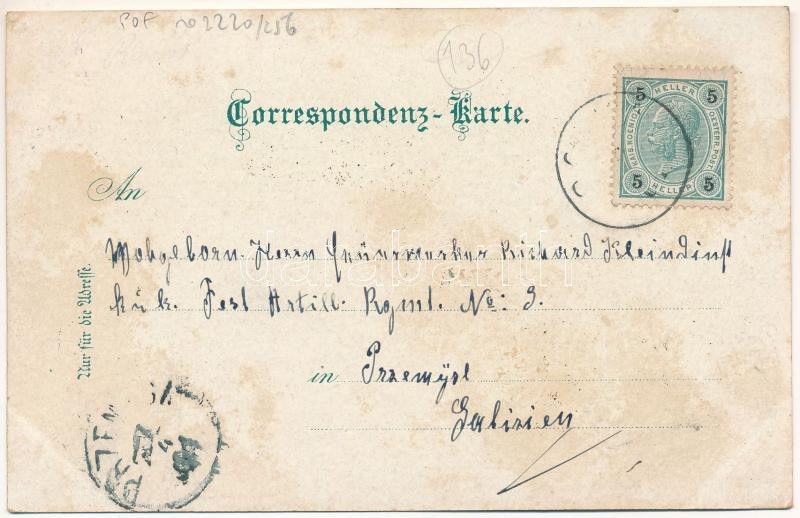 POF no 2220/256
136
Correspondenz-Karte.
5 HELLER 5
KAIS. KOENIGL. OESTERR. POST
5 HELLER 5
An
Wohgeborn Herrn Feuerwerker Richard Kleindinst
k u k. Fest Artill. Rgmt. No: 3.
in Przemÿsl
Galizien
Nur für die Adresse.
darabanth
PRZEM